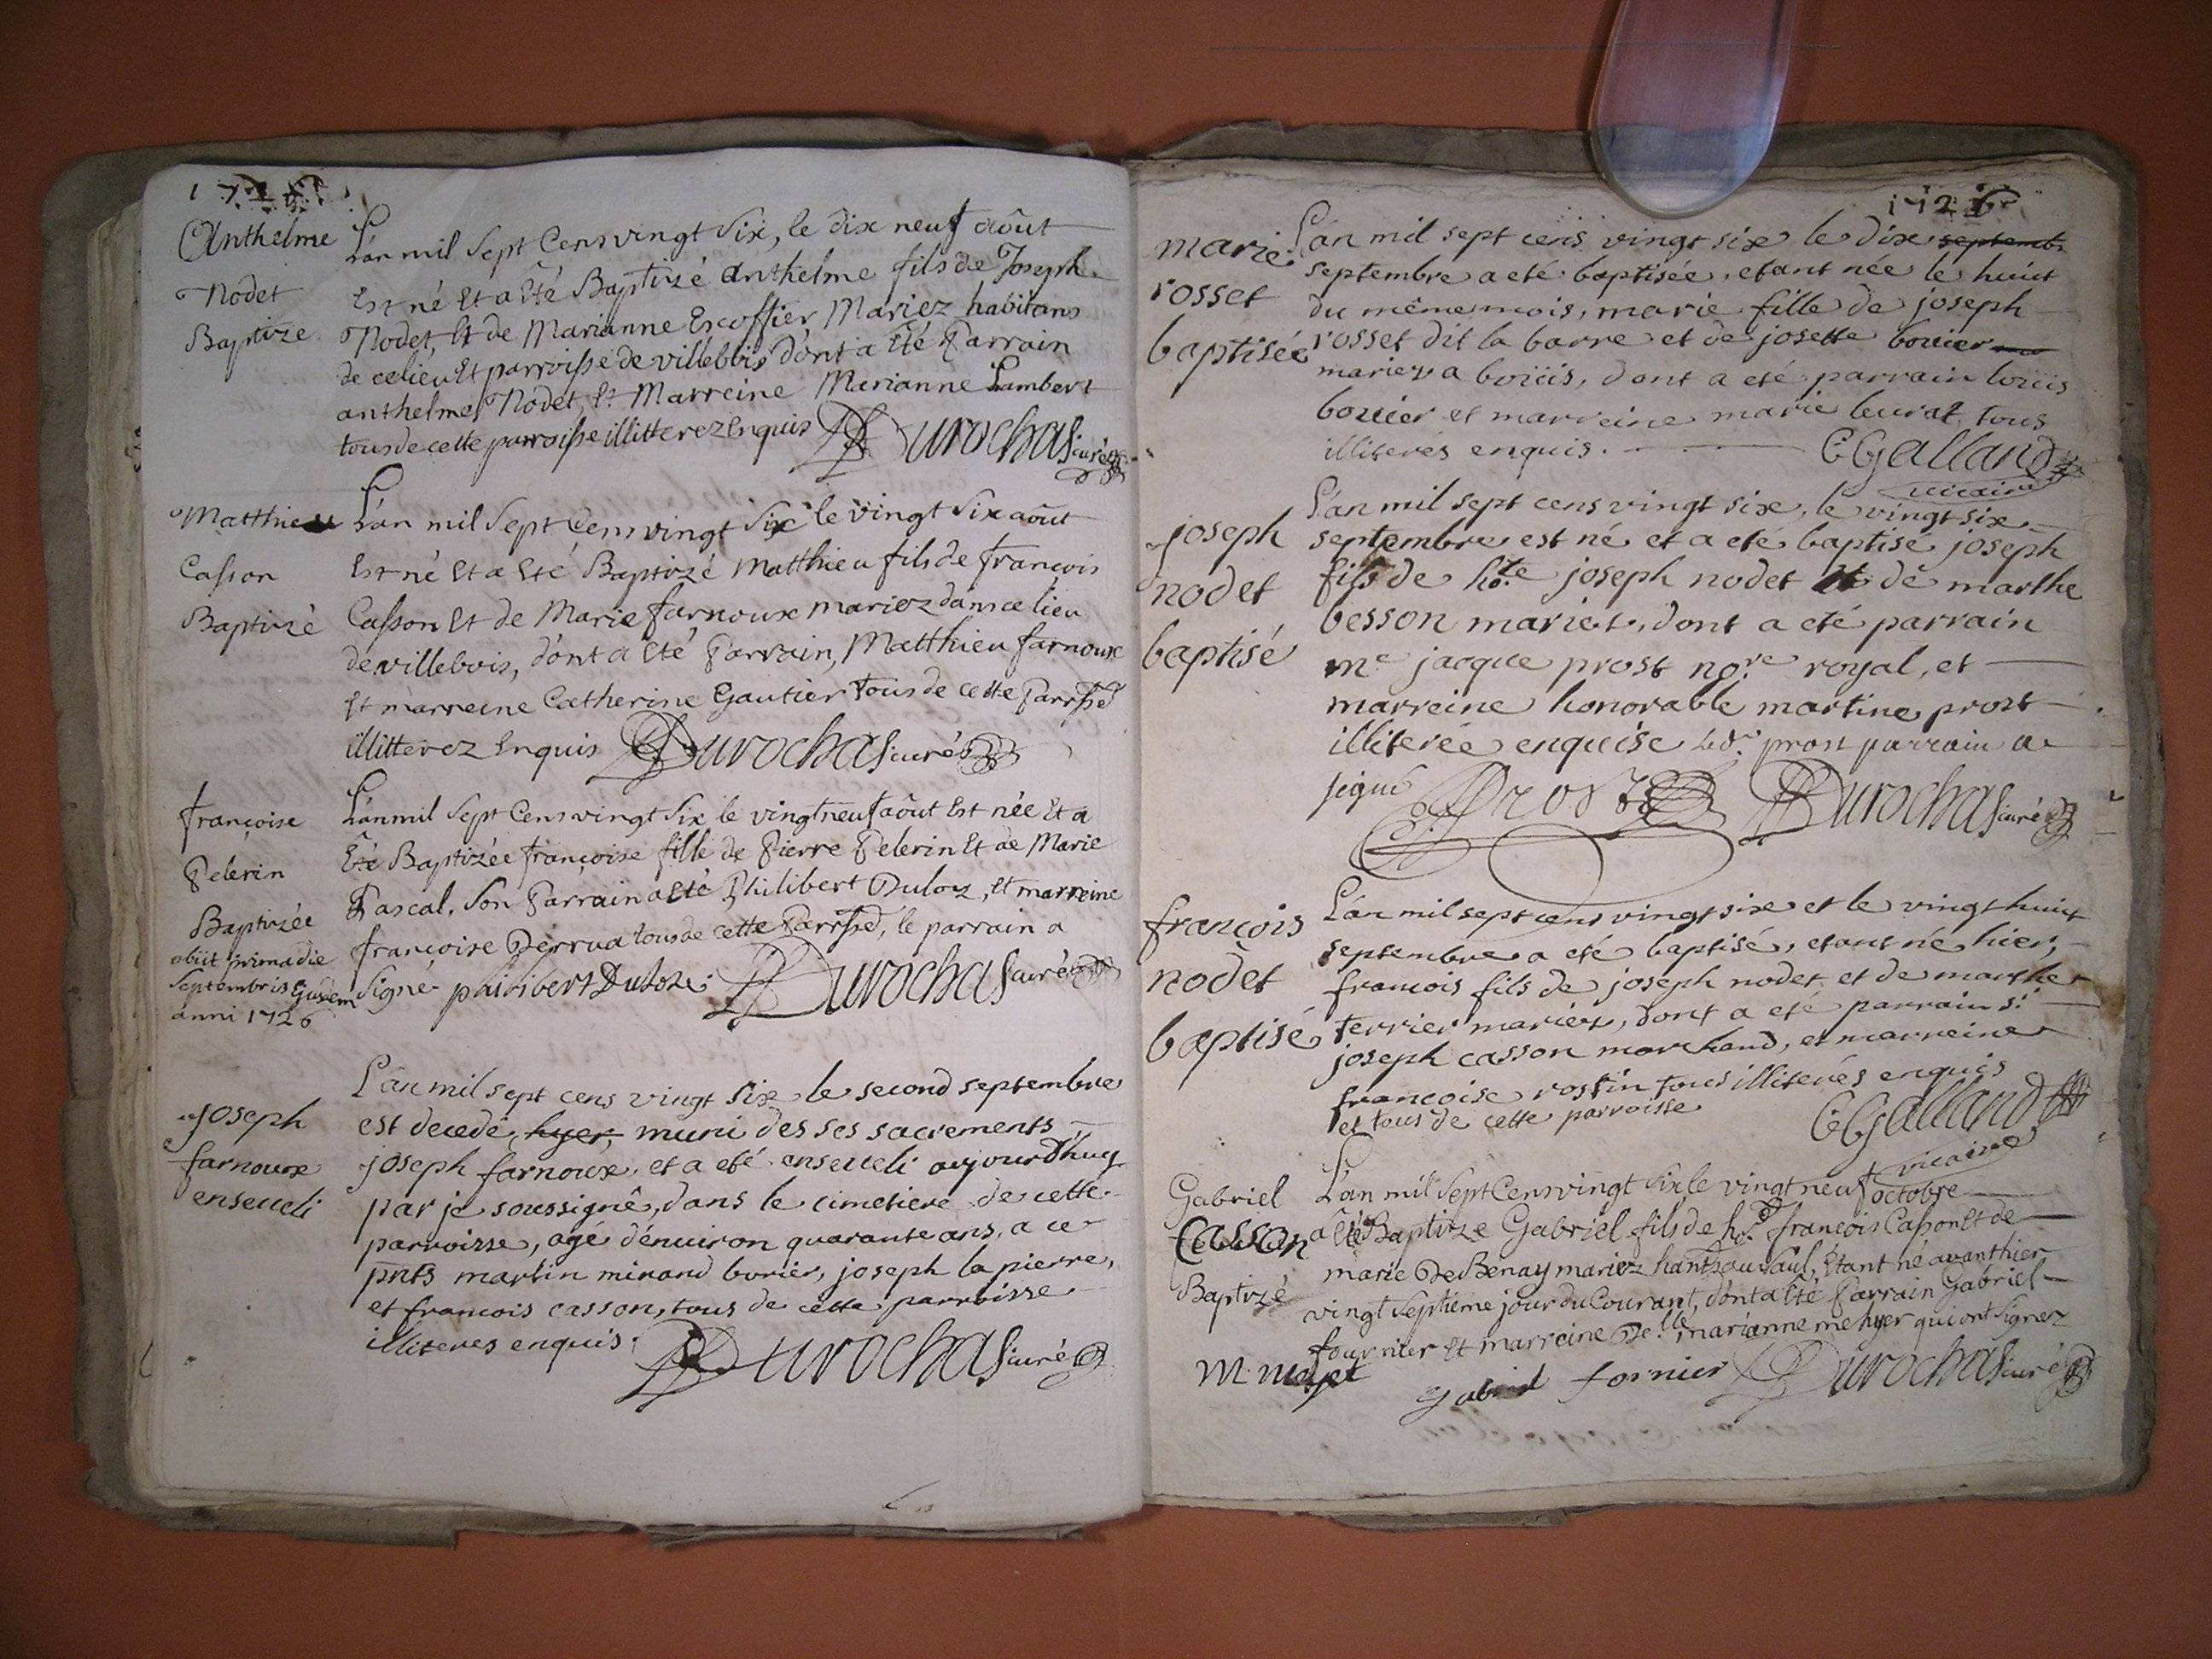 1726
Anthelme
Nodet
Baptizé
L'an mil Sept Cens vingt Six, le dix neuf août
Est né Et a Eté Baptizé Anthelme fils de Joseph
Nodet, Et de Marianne Escoffier Mariez habitans
de ce lieu Et parroisse de villebois dont a Eté Parrain
anthelme Nodet, Et Marreine Marianne Lambert
tous de cette parroisse illitterez Enquis Durochas curé
Matthieu
Casson
Baptizé
L'an mil Sept Cens vingt Six le vingt Six août
Est né Et a Eté Baptizé Matthieu fils de françois
Casson Et de Marie farnoux mariez dans ce lieu
de villebois, dont a Eté Parrain, Matthieu farnoux
Et marreine Catherine Gautier tous de cette Parrsse
illitterez Enquis Durochas curé
françoise
Pelerin
Baptizée
obiit prima die
Septembris Ejusdem
anni 1726
L'an mil Sept Cens vingt Six le vingt neuf août Est née Et a
Eté Baptizée françoise fille de Pierre Pelerin Et de Marie
Pascal. Son Parrain a Eté Philibert Duloz, Et marreine
françoise Perrua tous de cette Parrsse, le parrain a
Signé philibert Duloz. Durochas curé
joseph
farnoux
enseveli
L'an mil sept cens vingt six le second septembre
est decedé hyer, muni des ses sacrements
joseph farnoux, et a eté enseveli aujourdhuy
par je soussigné, dans le cimetiere de cette
parroisse, agé d'environ quarante ans, a ce
pnts martin minand borier, joseph la pierre,
et francois casson, tous de cette parroisse
illiteres enquis. Durochas curé
1726
marie
rosset
baptisée
L'an mil sept cens vingt six le dix septemb.
septembre a eté baptisée, etant née le huit
du même mois, marie fille de joseph
rosset dit la barre et de josette bovier
mariez a boüis, dont a eté parrain loüis
bovier et marreine marie leurat tous
illiterés enquis. CGalland
vicaire
joseph
nodet
baptisé
L'an mil sept cens vingt six, le vingt six
septembre est né et a eté baptisé joseph
fils de h.te joseph nodet et de marthe
besson mariez, dont a eté parrain
me jacque prost no.re royal, et
marreine honorable martine prost
illiterée enquise led. prost parrain a
signé Prost Durochas curé
francois
nodet
baptisé
L'an mil sept cens vingt six et le vingt huit
septembre a eté baptisé, etant né hier,
francois fils de joseph nodet et de marthe
terrier mariez, dont a eté parrain sr.
joseph casson marchand, et marreine
francoise rostin tous illiterés enquis
et tous de cette parroisse CGalland
vicaire
Gabriel
Casson
Baptizé
L'an mil Sept Cens vingt Six le vingt neuf octobre
a Eté Baptize Gabriel fils de h. françois Casson Et de
marie DeBenay mariez hants au Saul, Etant né avanthier
vingt Septieme jour du Courant, dont a Eté Parrain Gabriel
fournier Et marreine De.lle marianne meyer qui ont Signez
gabriel fornier Durochas curé